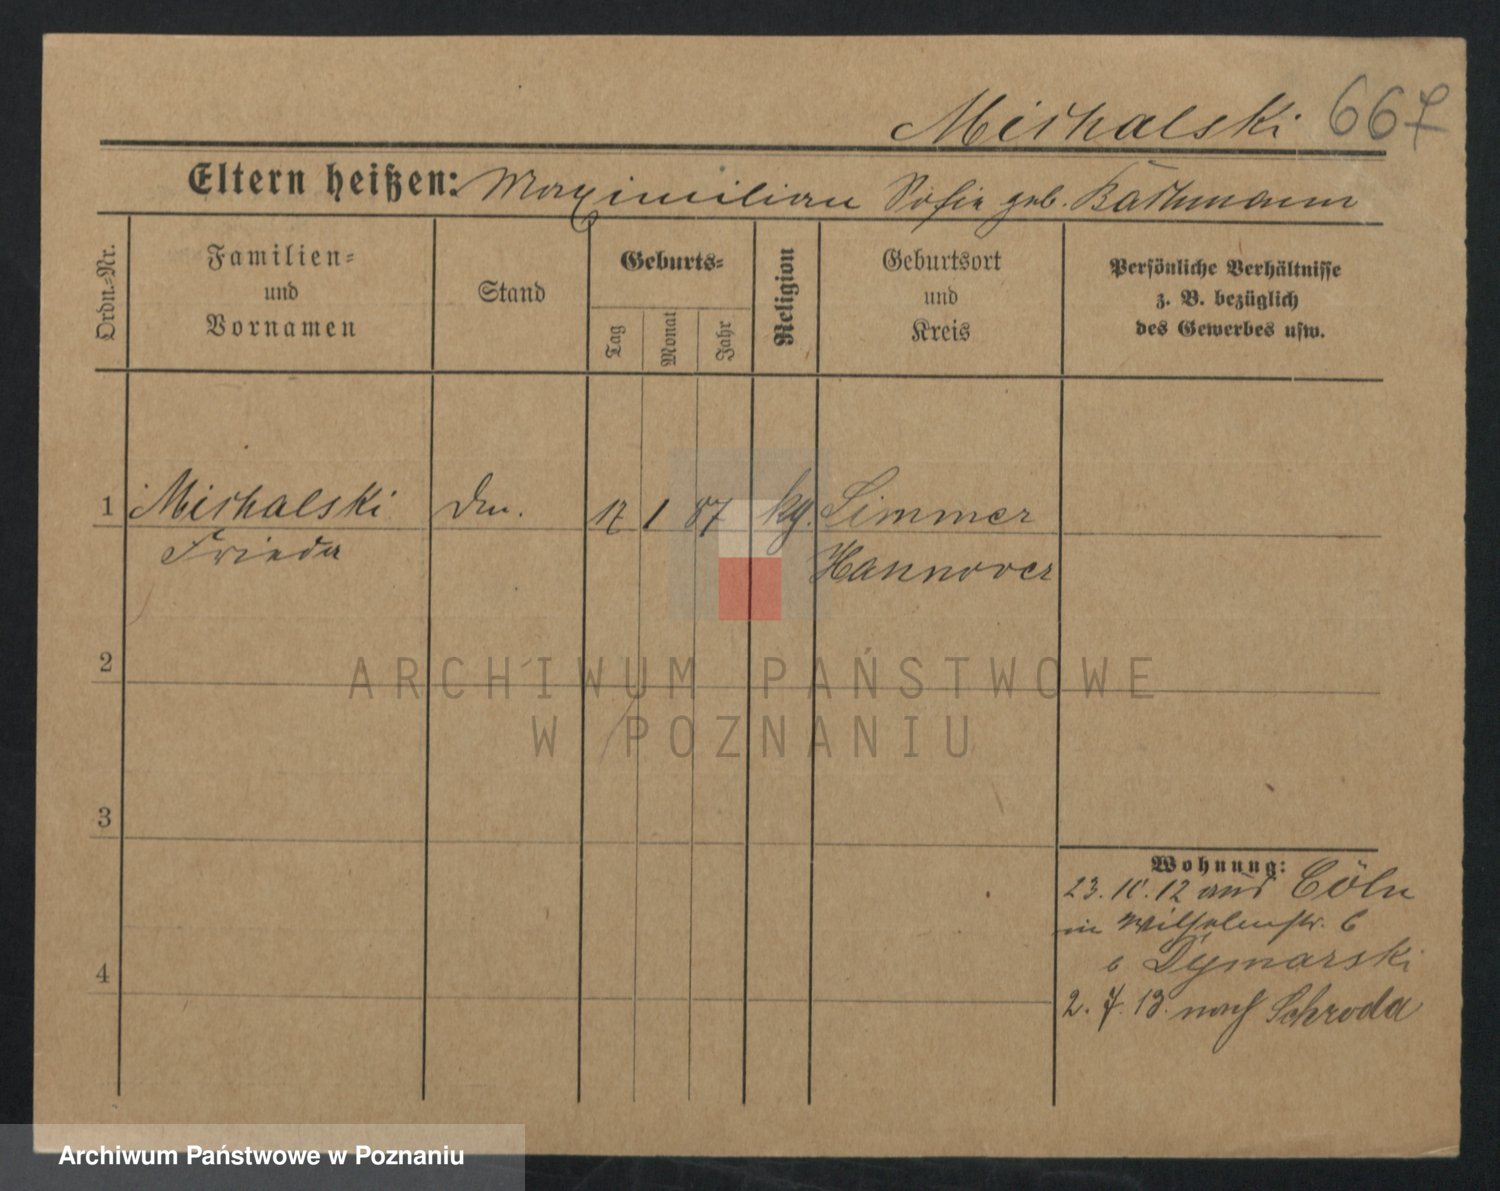 Michalski 667
Eltern heißen: Maximilian Sofie geb. Bathmann
Ordn.-Nr.
Familien-
und
Vornamen
Stand
Geburts-
Tag
Monat
Jahr
Religion
Geburtsort
und
Kreis
Persönliche Verhältnisse
z. B. bezüglich
des Gewerbes usw.
1 Michalski 17 1 87 kg. Limmer
Frieda Hannover
2
3
4
ARCHIWUM PAŃSTWOWE
W POZNANIU
Wohnung:
23. 10. 12 aus Cöln
in Wilhelmstr. 6
b Dymarski
2. 7. 13. nach Schroda
Archiwum Państwowe w Poznaniu